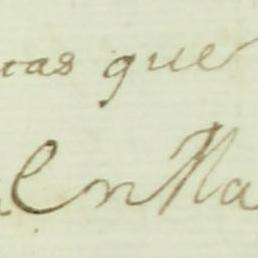 cas que
En Ma